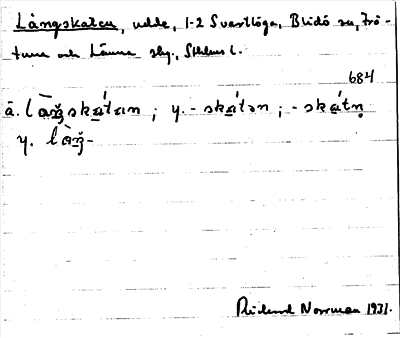 Långskaten, udde, 1-2 Svartlöga, Blidö sn, Frö-
tuna och Länna skg., Sthlms l.
684
ä. lå̀ŋskatan ; y. - skátən ; - skátn̥
y. lå̀ŋ-
Rickard Norrman 1931.